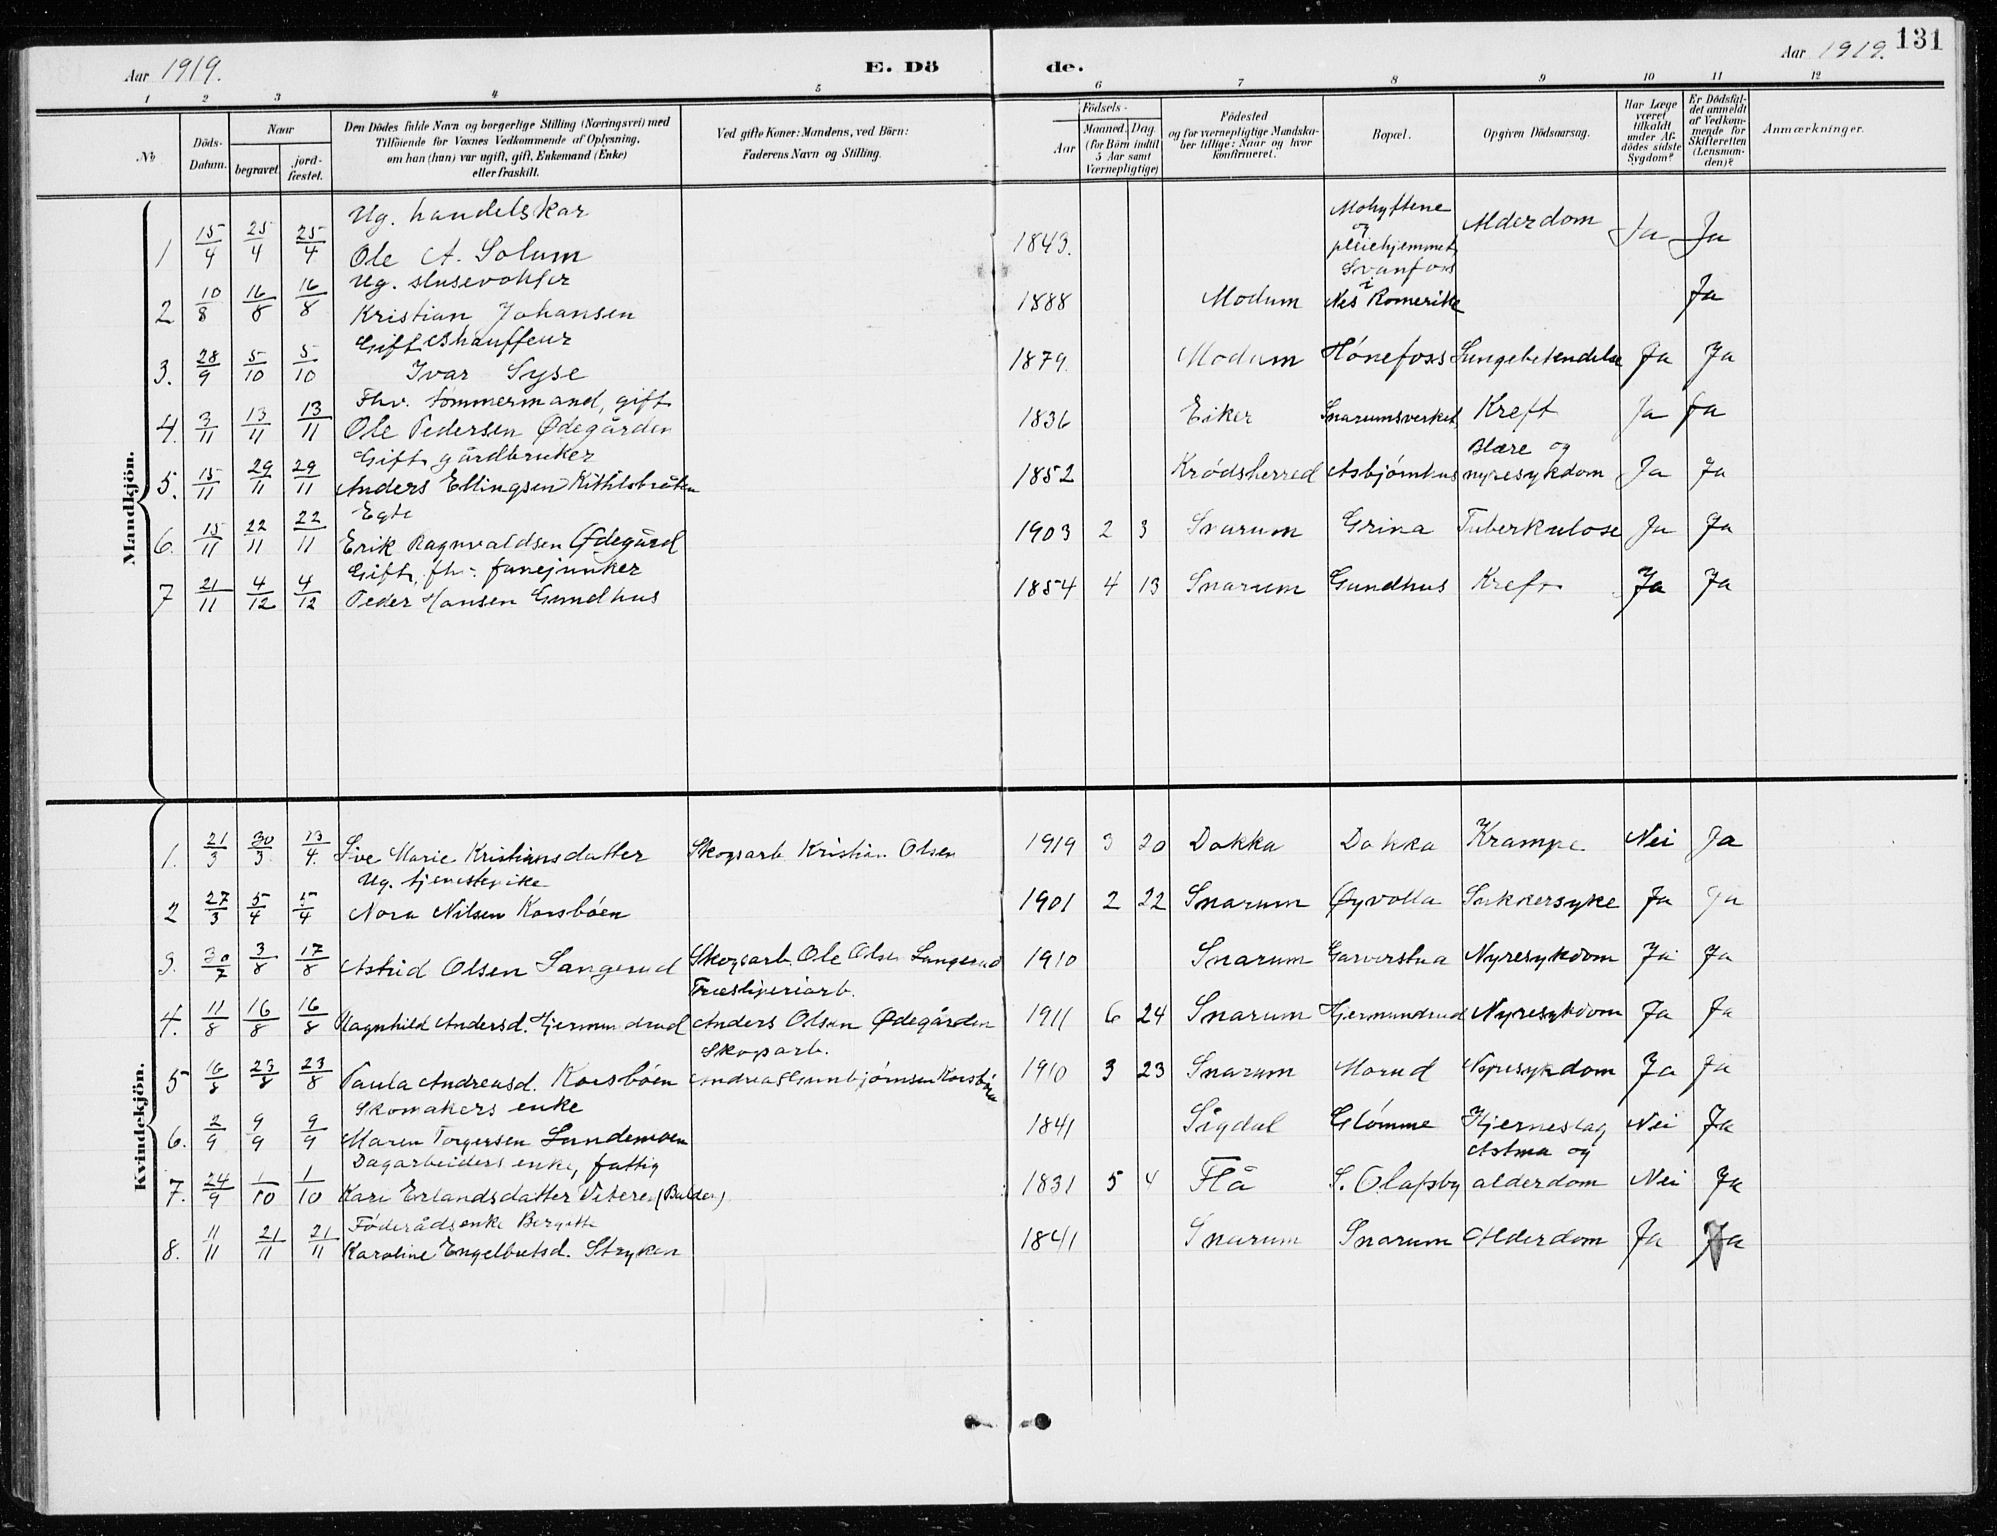 131
Aar 1919. E. Dö de. Aar 1919.
1 2 3 4 5 6 7 8 9 10 11 12
No
Döds-Datum.
Naar
begravet.
jord-fæstet.
Den Dödes fulde Navn og borgerlige Stilling (Næringsvei) med
Tilföiende for Voxnes Vedkommende af Oplysning,
om han (hun) var ugift, gift, Enkemand (Enke)
eller fraskilt.
Ved gifte Koner: Mandens, ved Börn:
Faderens Navn og Stilling.
Födsels-
Aar
Maaned. Dag
(for Börn indtil
5 Aar samt
Værnepligtige)
Födested
og for værnepligtige Mandska-
ber tillige: Naar og hvor
konfirmeret.
Bopæl.
Opgiven Dödsaarsag.
Har Læge
været
tilkaldt
under Af-
dödes sidste
Sygdom?
Er Dödsfal-
det anmeldt
af Vedkom-
mende for
Skifteretten
(Lensman-
den)?
Anmærkninger.
Mandkjön.
Ug. handelskar
1 15/4 25/4 25/4 Ole A. Solum 1843. og pleiehjemmet Svanfoss Alderdom Ja Ja
Ug. slusevokter
2 10/8 16/8 16/8 Kristian Johansen 1888 Modum i Nes Romerike Ja
Gift Chauffeur
3. 28/9 5/10 5/10 Ivar Syse 1879. Modum Hönefoss Lungebetendelse Ja Ja
Fhv. tömmermand, gift
4. 3/11 13/11 13/11 Ole Pedersen Ødegården 1836 Eiker Snarumsverket Kreft Ja Ja
Gift gårdbruker
5. 15/11 29/11 29/11 Anders Ellingsen Kithilsbråten 1852 Krødsherred Asbjørnhus Blære og nyresykdom Ja Ja
Egte
6. 15/11 22/11 22/11 Erik Ragnvaldsen Ødegård 1903 2 3 Snarum Grina Tuberkulose Ja Ja
Gift, fh. fanejunker
7 21/11 4/12 4/12 Peder Hansen Gundhus 1854 4 13 Snarum Gundhus Kreft Ja Ja
Kvindekjön.
1. 21/3 30/3 13/4. Live Marie Kristiansdatter Skogsarb. Kristian Olsen 1919 3 20 Dokka Dokka Krampe Nei Ja
Ug. tjenestepike
2 27/3 5/4 5/4 Nora Nilsen Korsböen 1901 2 22 Snarum Øyvolla Sukkersyke Ja Ja
3. 30/7 3/8 17/8 Astrid Olsen Langerud Skogsarb. Ole Olsen Langerud 1910 Snarum Garverstua Nyresykdom Ja Ja
Træsliperiarb.
4. 11/8 16/8 16/8 Ragnhild Andersd. Hjermundrud Anders Olsen Ødegården 1911 6 24 Snarum Hjermundrud Nyresykdom Ja Ja
Skogsarb.
5 16/8 23/8 23/8 Paula Andreasd. Korsböen Andreas Gunbjørnsen Korsböen 1910 3 23 Snarum Morud Nyresykdom Ja Ja
Skomakers enke
6. 2/9 9/9 9/9 Maren Torgersen Landemoen 1841 Sigdal Glömme Hjerneslag Nei Ja
Dagarbeiders enke, fattig
7. 24/9 1/10 1/10 Kari Erlandsdatter 1831 5 4 Flå S. Olafsby Astma og alderdom Nei Ja
Föderådsenke Bergitte
8. 11/11 21/11 21/11 Karoline Engelbretsd. Stryken 1841 Snarum Snarum Alderdom Ja Ja